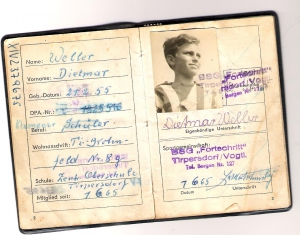 XVI 2379635
Name: Weller
Vorname: Dietmar
Geb.-Datum: 55
DPA-Nr.:
Beruf: Schüler
Wohnanschrift: Ti.-Groten-
feld Nr. 89
Schule: Zentr. Oberschule
Tirpersdorf
Mitglied seit: 1.6.65
BSG „Fortschritt"
Tirpersdorf/Vogtl.
Dietmar Weller
Eigenhändige Unterschrift
Sportgemeinschaft:
BSG „Fortschritt"
Tirpersdorf/Vogtl.
Tel. Bergen Nr. 127
1.6.65
Datum Unterschrift